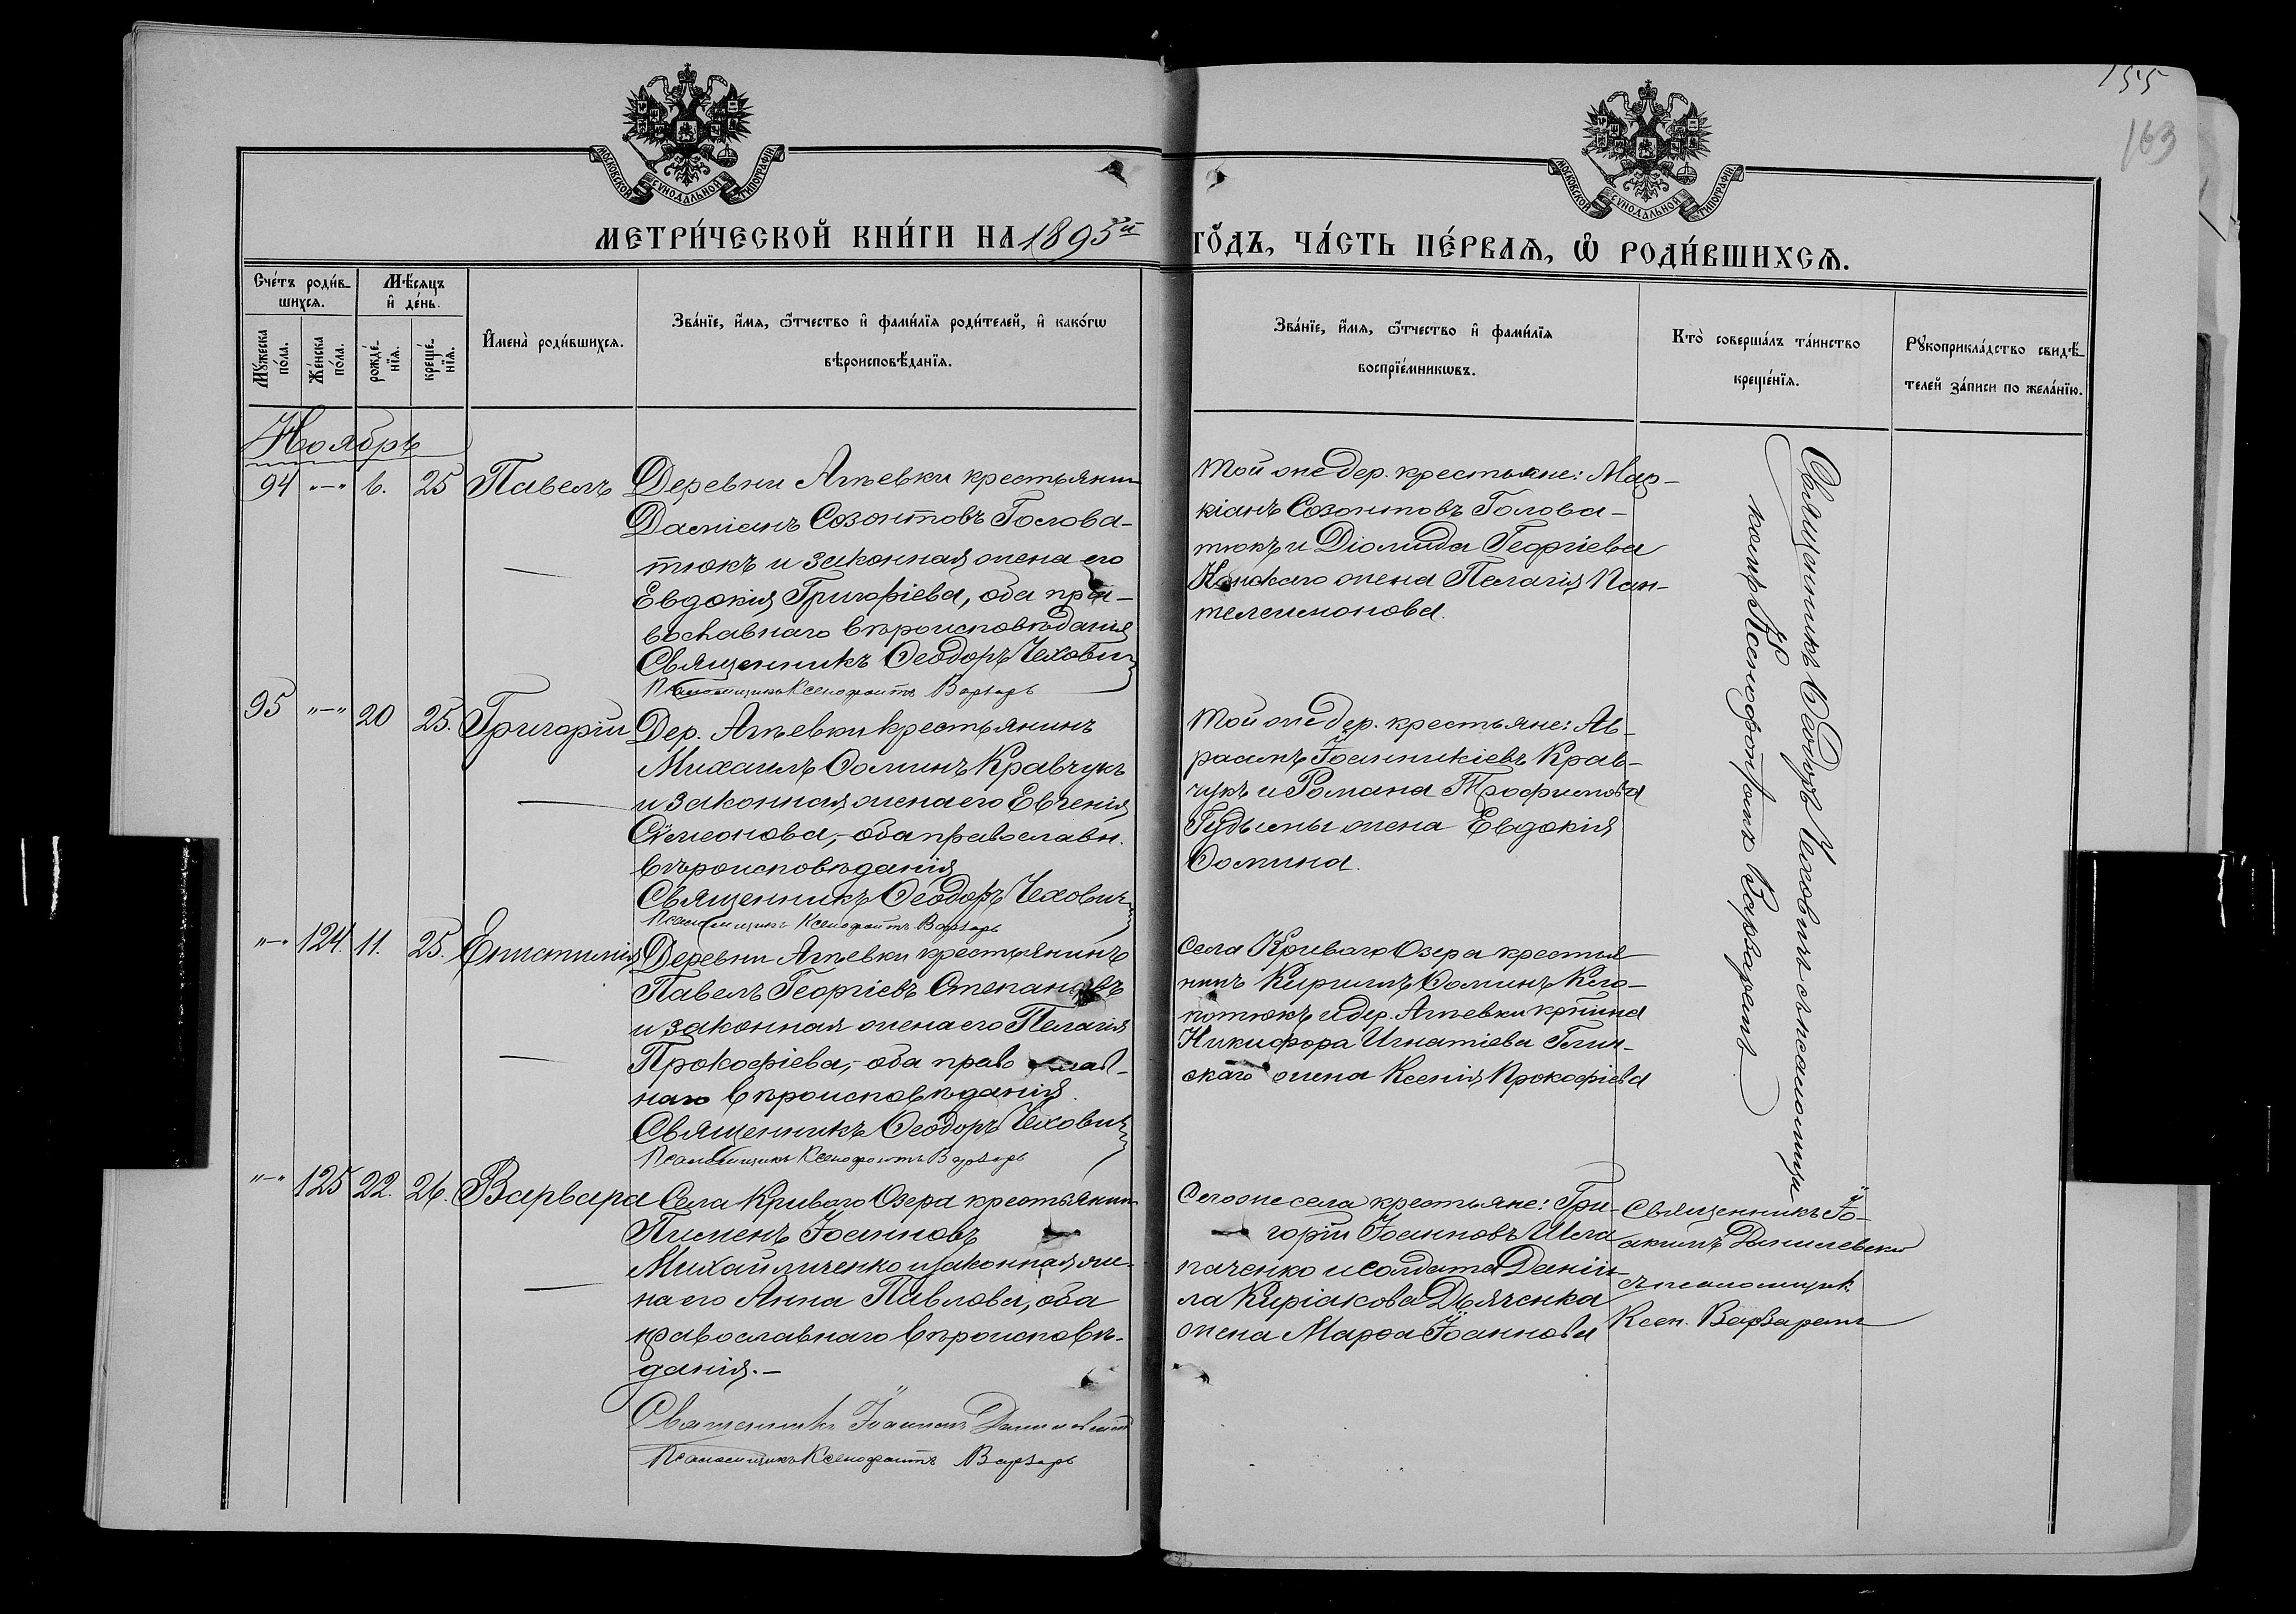 155
163
МОСКОВСКОЙ СѴНОДАЛЬНОЙ ТИПОГРАФІИ
МОСКОВСКОЙ СѴНОДАЛЬНОЙ ТИПОГРАФІИ
МЕТРИ́ЧЕСКОЙ КНИ́ГИ НА 1895й
ГО́ДЪ, ЧА́СТЬ ПЕ́РВАѦ, Ѡ҆ РОДИ́ВШИХСѦ.
Сче́тъ роди́в-
шихсѧ.
Мѣ́сѧцъ
и҆ де́нь.
Мꙋ́жеска
по́ла.
Же́нска
по́ла.
рожде́-
нїѧ.
креще́-
нїѧ.
И҆мена̀ роди́вшихсѧ.
Зва́нїе, и҆́мѧ, ѻ҆́тчество и҆ фами́лїѧ роди́телей, и҆ како́гѡ
вѣроисповѣ́данїѧ.
Зва́нїе, и҆́мѧ, ѻ҆́тчество и҆ фами́лїѧ
воспрїе́мникѡвъ.
Кто̀ соверша́лъ та́инство
креще́нїѧ.
Рꙋкоприкла́дство свидѣ́-
телей за́писи по жела́нїю.
Ноябрь
94 "—" 6. 25 Павелъ
Деревни Агѣевки крестьянинъ
Даміанъ Созонтовъ Голова-
тюкъ и законная жена его
Евдокія Григоріева, оба пра-
вославнаго вѣроисповѣданія
Священникъ Ѳеодоръ Чехович
Псаломщикъ Ксенофонтъ Варзарь
Той же дер. крестьяне: Мар-
кіанъ Созонтовъ Голова-
тюкъ и Діомида Георгіева
жена Пелагія Пан-
телеимонова.
Священникъ Ѳеодоръ Чеховичъ съ псаломщи-
комъ Ксенофонтомъ Варзаремъ.
95 "—" 20 25. Григорій
Дер. Агѣевки крестьянинъ
Михаилъ Ѳоминъ Кравчукъ
и законная жена его Евгенія
Сѵмеонова,- оба православн.
вѣроисповѣданія
Священникъ Ѳеодоръ Чехович
Псаломщикъ Ксенофонтъ Варзарь
Той же дер. крестьяне: Ав-
раамъ Іоанникіевъ Крав-
чукъ и Романа Трофимова
Гудымы жена Евдокія
Ѳомина.
"—" 124. 11. 25. Епистимія
Деревни Агѣевки крестьянинъ
Павелъ Георгіевъ Степановъ
и законная жена его Пелагія
Прокофіева,- оба православ-
наго вѣроисповѣданія.
Священникъ Ѳеодоръ Чехович
Псаломщикъ Ксенофонтъ Варзарь
Села Криваго Озера крестья-
нинъ Кириллъ Ѳоминъ
и дер. Агѣевки крѣина
Никифора Игнатіева Глин-
скаго жена Ксенія Прокофіева
"—" 125 22. 26. Варвара
Села Криваго Озера крестьянин
Пименъ Іоанновъ
Михайличенко и законная же-
на его Анна Павлова, оба
православнаго вѣроисповѣ-
данія.—
Священникъ Іоакимъ Данилевскій
Псаломщикъ Ксенофонтъ Варзарь
Сего же села крестьяне: Гри-
горій Іоанновъ Шла
паченко и солдата Даніи-
ла Киріакова Дьяченка
жена Марѳа Іоаннова
Священникъ Іо-
акимъ Данилевскій
съ псаломщик.
Ксен. Варзаремъ